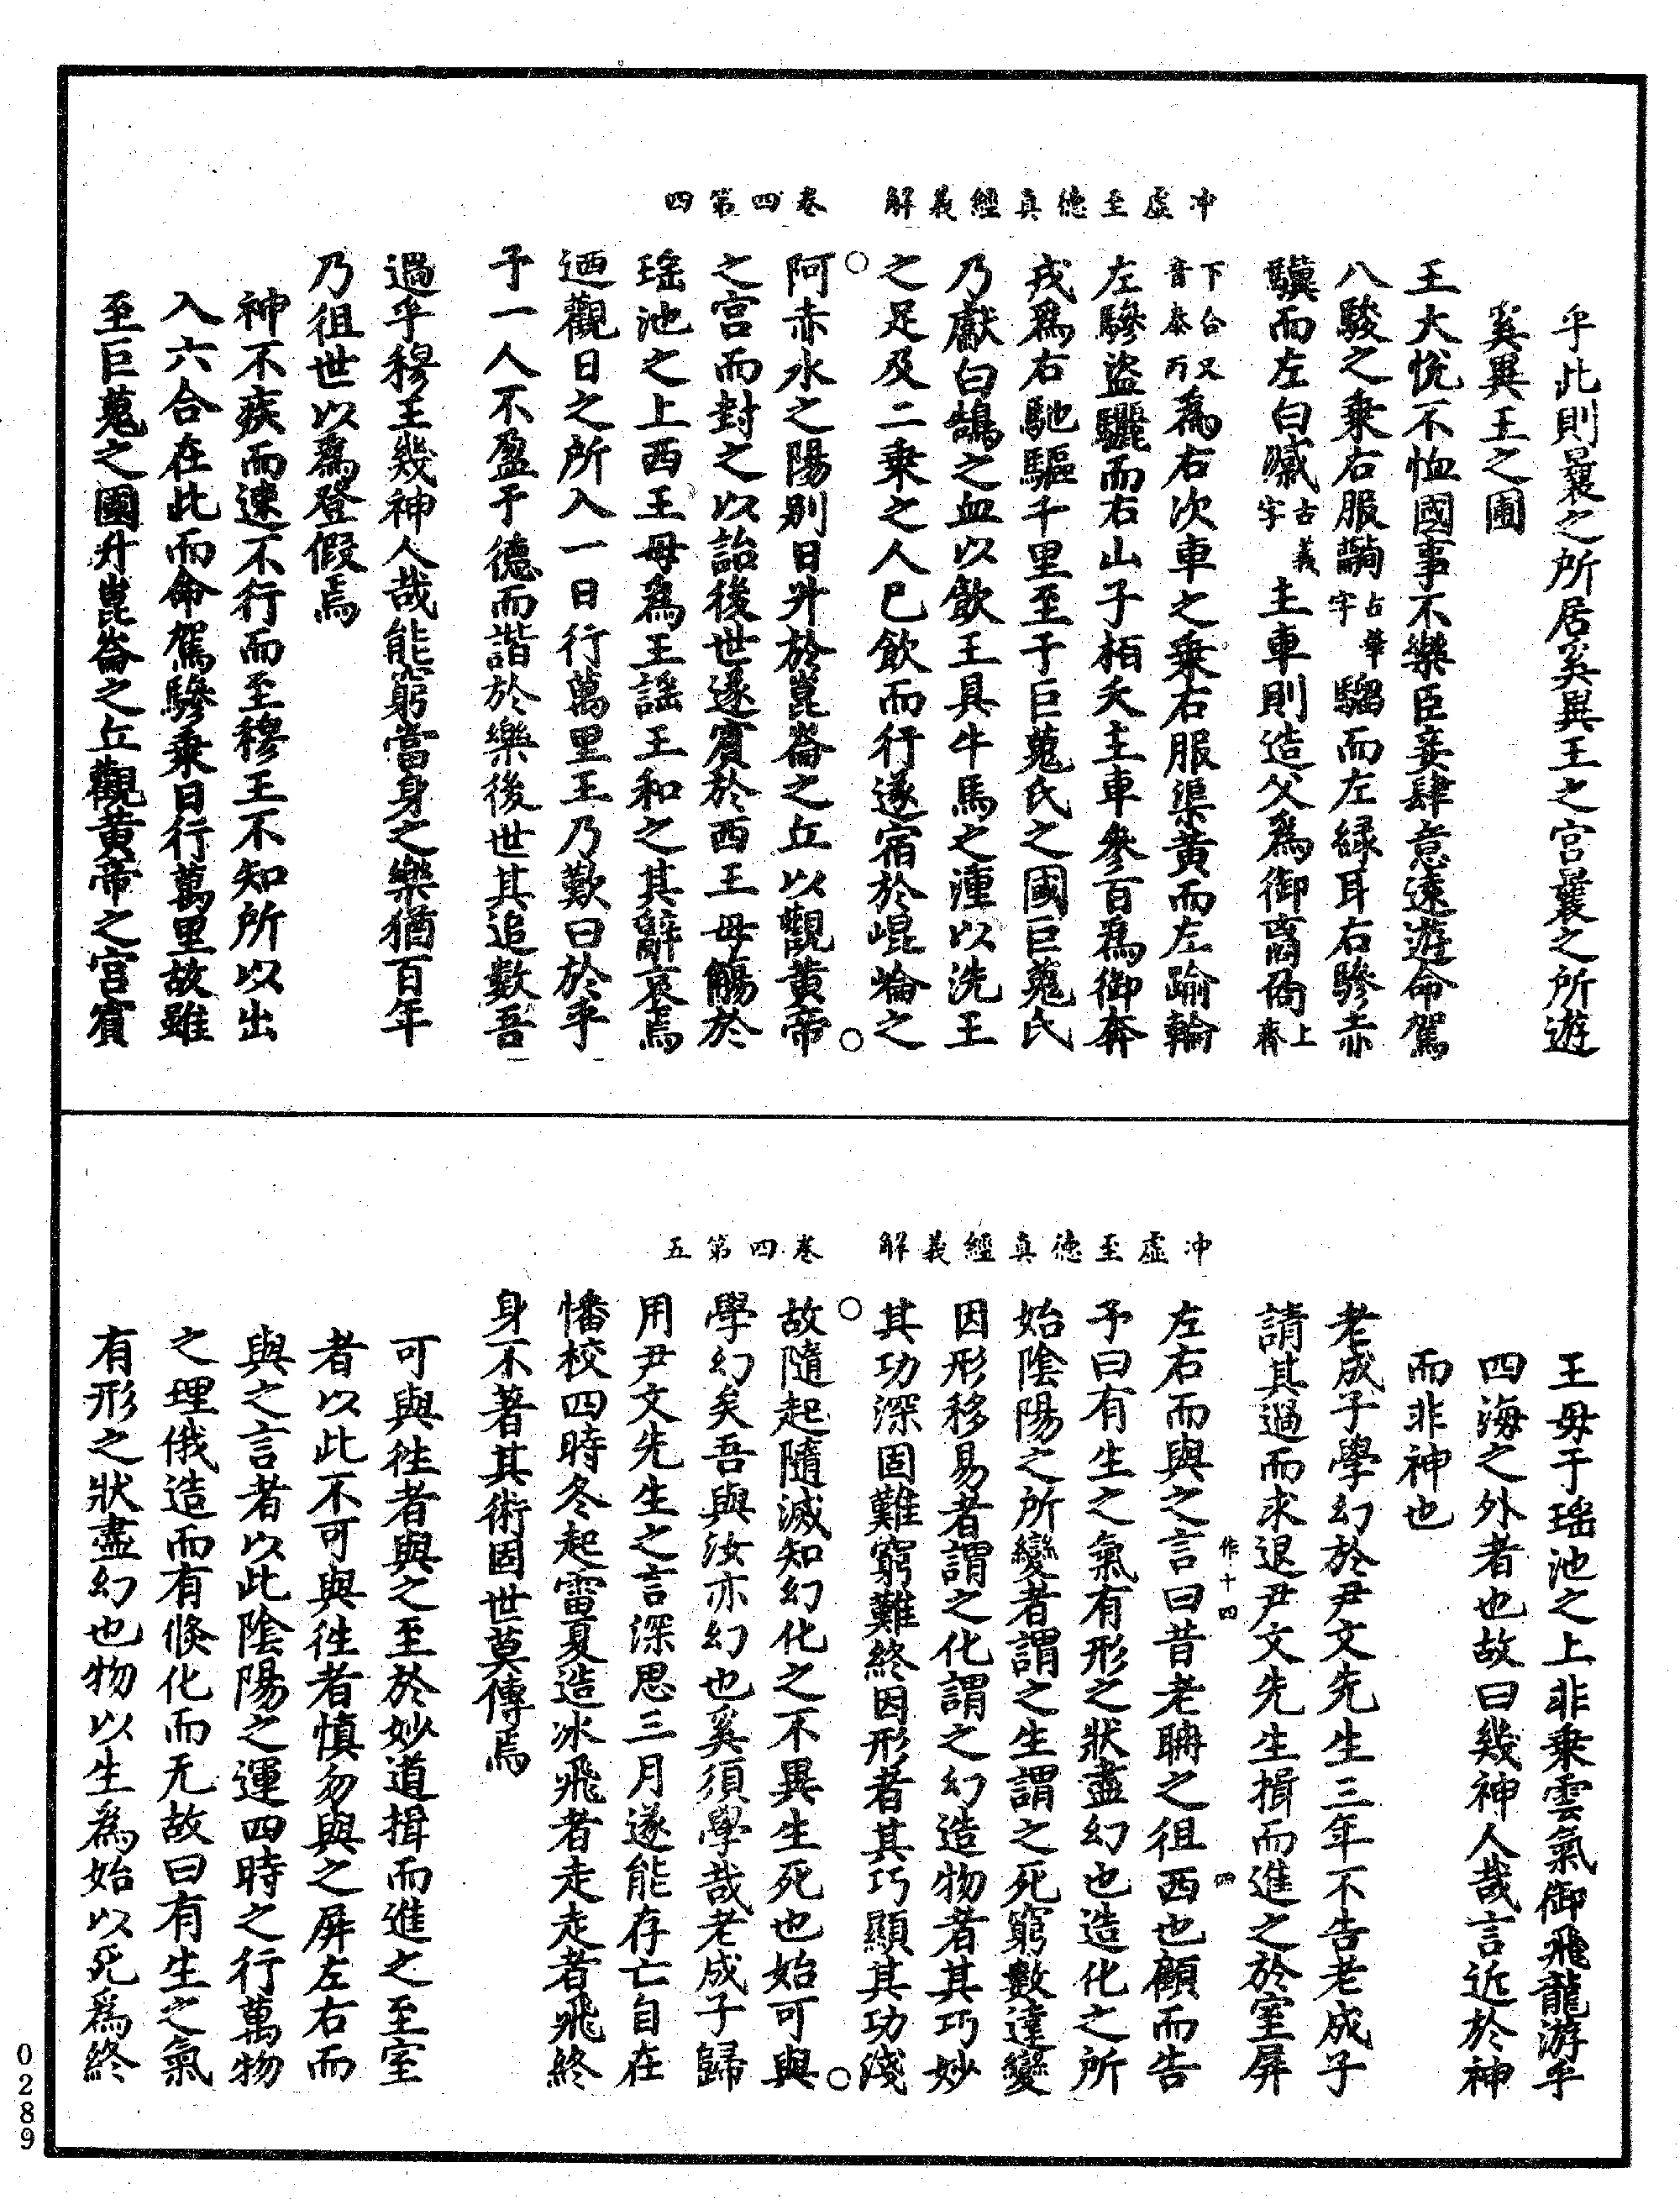 冲虛至德真經義解　卷四第四
乎此則曩之所居奚異王之宮曩之所遊
奚異王之圃
王大悅不恤國事不樂臣妾肆意遠遊命駕
八駿之乘右服䯄古華字騮而左緑耳右驂赤
驥而左白𣚘古義字主車則造父為御离𠵋上齊
下合又音泰丙為右次車之乘右服渠黃而左踰輪
左驂盜驪而右山子栢夭主車參百為御奔
戎為右馳驅千里至于巨蒐氏之國巨蒐氏
乃獻白鵠之血以飲王具牛馬之湩以洗王
之足及二乘之人已飲而行遂宿於崐崙之
阿赤水之陽別日升於崑崙之丘以觀黃帝
之宮而封之以詒後世遂賓於西王母觴於
瑤池之上西王母為王謠王和之其辭哀焉
迺觀日之所入一日行萬里王乃歎曰於乎
予一人不盈于德而諧於樂後世其追數吾
過乎穆王幾神人哉能窮當身之樂猶百年
乃徂世以為登假焉
神不疾而速不行而至穆王不知所以出
入六合在此而命駕驂乘日行萬里故雖
至巨蒐之國升崑崙之丘觀黃帝之宮賓
冲虛至德真經義解　卷四第五
王母于瑤池之上非乘雲氣御飛龍游乎
四海之外者也故曰幾神人哉言近於神
而非神也
老成子學幻於尹文先生三年不告老成子
請其過而求退尹文先生揖而進之於室屏
作十四　四
左右而與之言曰昔老聃之徂西也顧而告
予曰有生之氣有形之狀盡幻也造化之所
始陰陽之所變者謂之生謂之死窮數達變
因形移易者謂之化謂之幻造物者其巧妙
其功深固難窮難終因形者其巧顯其功淺
故隨起隨滅知幻化之不異生死也始可與
學幻矣吾與汝亦幻也奚須學哉老成子歸
用尹文先生之言深思三月遂能存亡自在
憣校四時冬起雷夏造冰飛者走走者飛終
身不著其術固世莫傳焉
可與徃者與之至於妙道揖而進之至室
者以此不可與徃者慎勿與之屏左右而
與之言者以此陰陽之運四時之行萬物
之理俄造而有倏化而无故曰有生之氣
有形之狀盡幻也物以生為始以死為終
0289